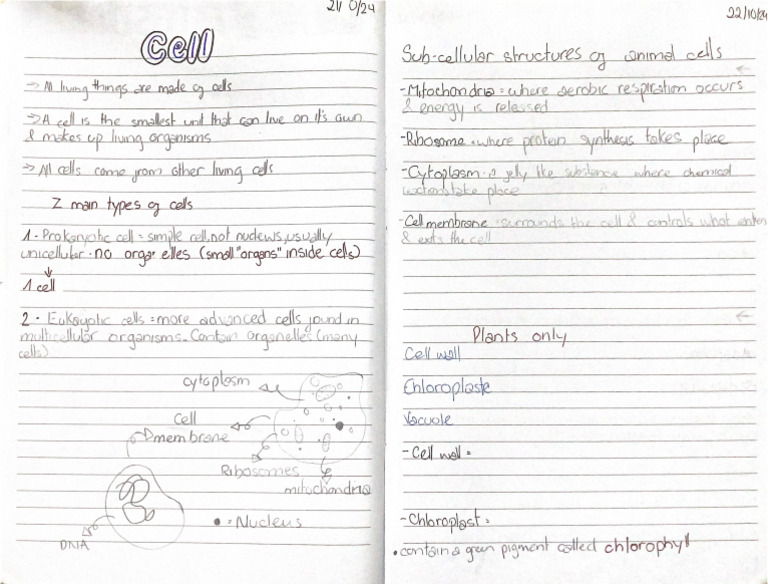 21/10/24
Cell
-> All living things are made of cells
-> A cell is the smallest unit that can live on it's own
& makes up living organisms
-> All cells come from other living cells
2 main types of cells
1 - Prokaryotic cell = simple cell, not nucleus, usually
unicellular - no organelles (small "organs" inside cells)
1 cell
2 - Eukayotic cells = more advanced cells found in
multicellular organisms. Contain organelles (many
cells)
cytoplasm
Cell
membrane
Ribosomes
mitochondria
= Nucleus
DNA
22/10/24
Sub-cellular structures of animal cells
- Mitochondria = where aerobic respiration occurs
& energy is released
- Ribosome = where protein synthesis takes place
- Cytoplasm - a jelly like substance where chemical
reactions take place
- Cell membrane - surrounds the cell & controls what enters
& exits the cell
Plants only
Cell wall
Chloroplasts
Vacuole
- Cell wall =
- Chloroplast =
• contain a green pigment called chlorophyll